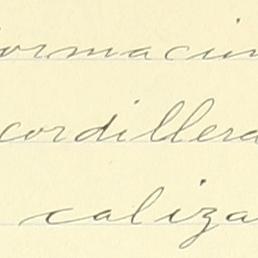 ormacion
cordillera
caliza